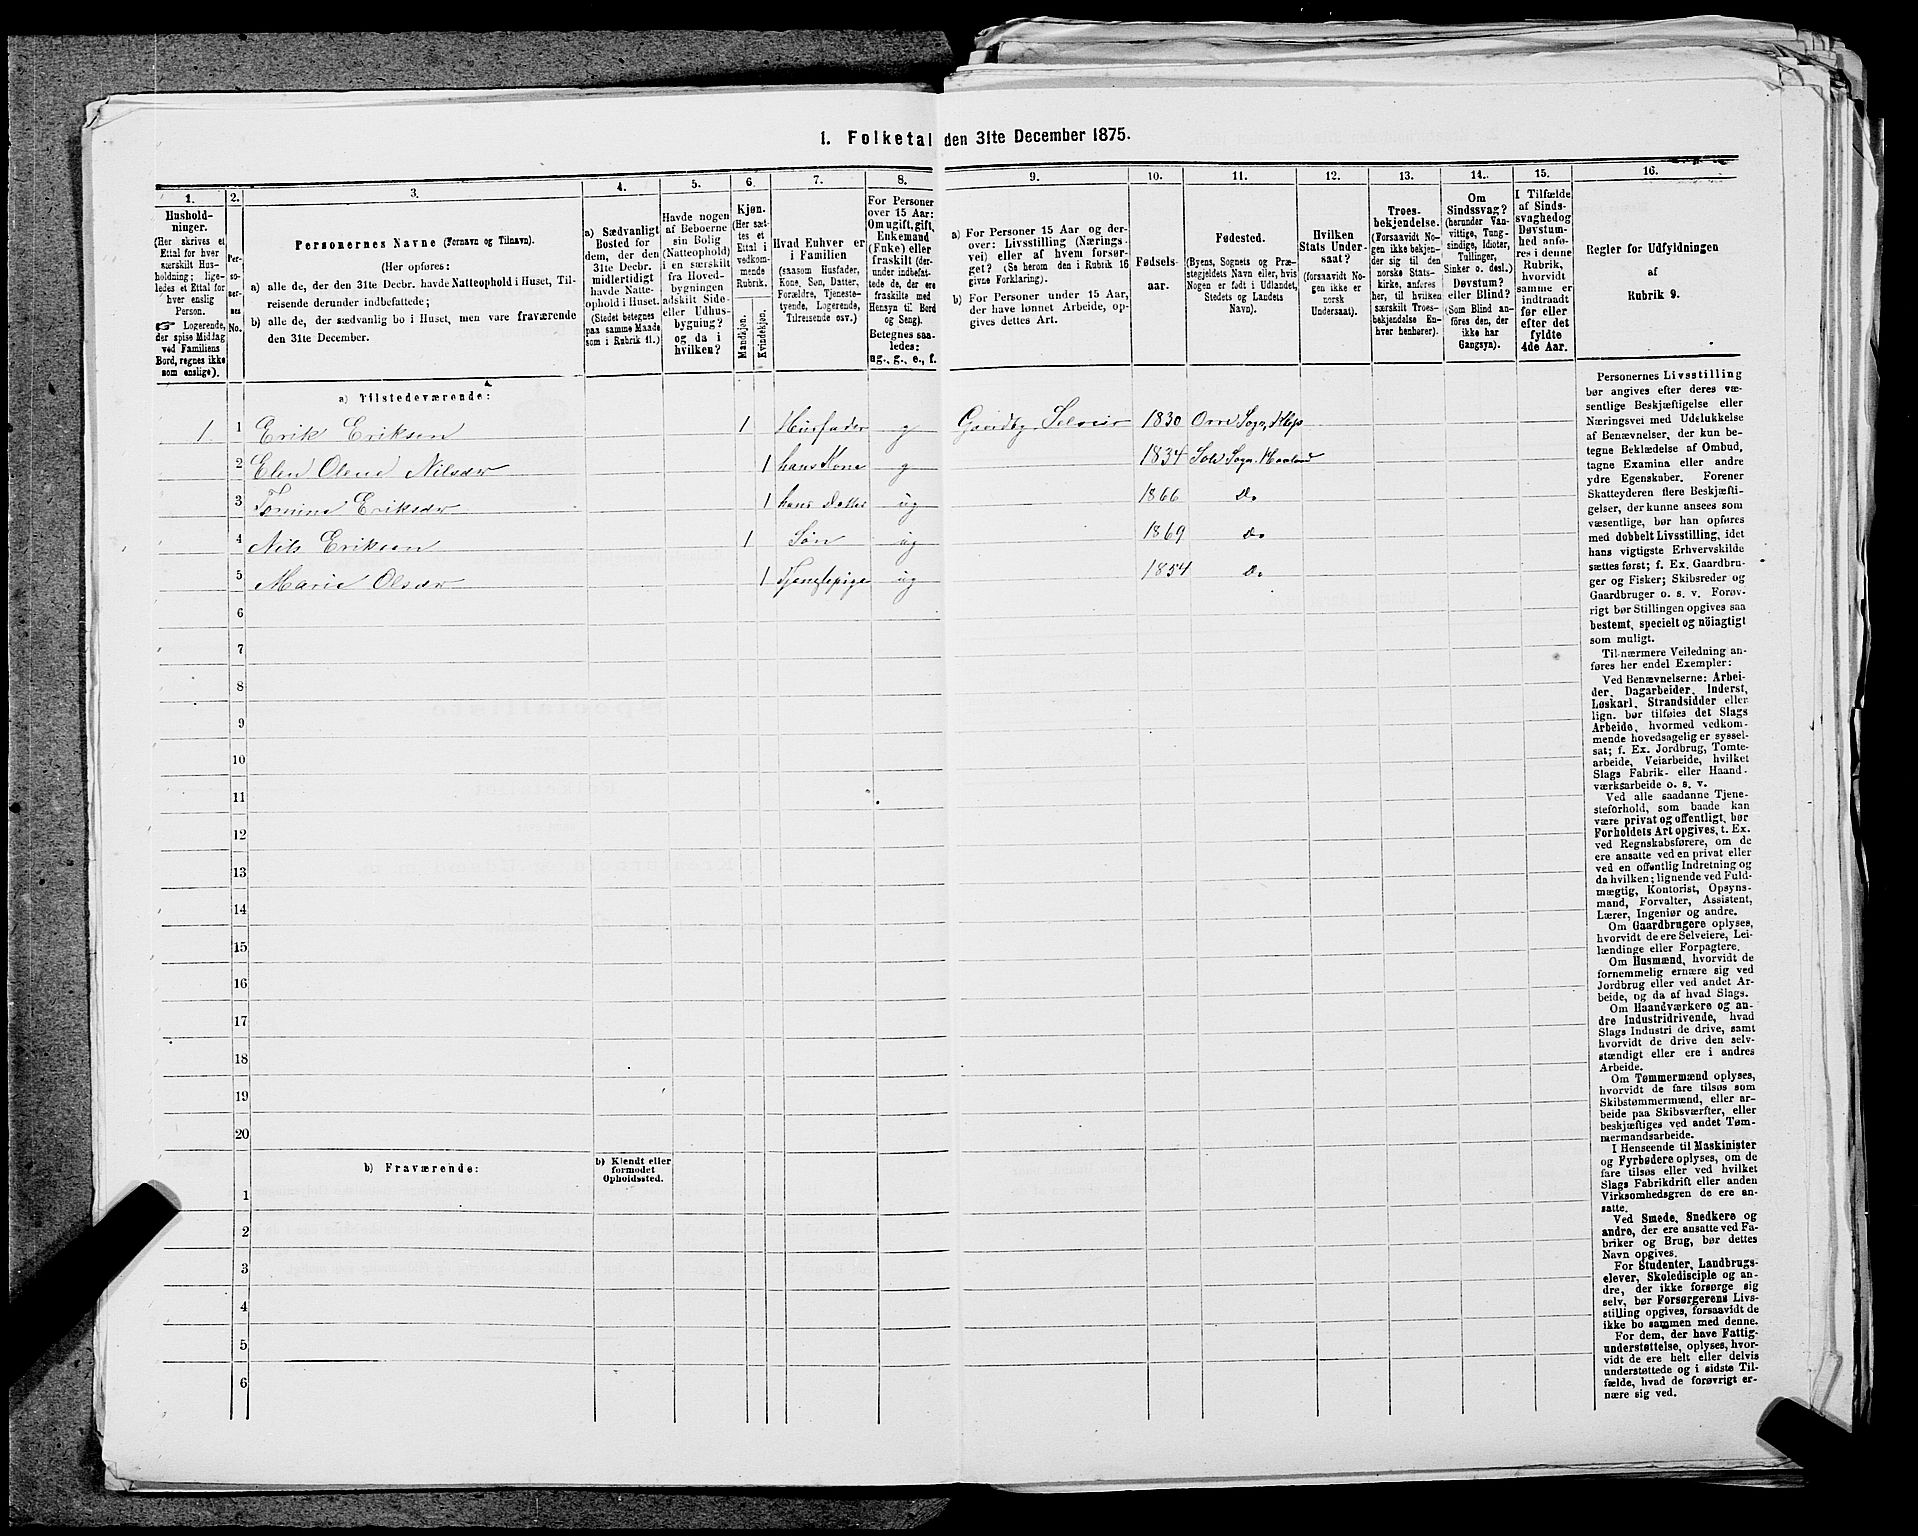 1. Folketal den 31te December 1875.
1.
Hushold-
ninger.
(Her skrives et
Ettal for hver
særskilt Hus-
holdning; lige-
ledes et Ettal for
hver enslig
Person.
☞ Logerende,
der spise Middag
ved Familiens
Bord, regnes ikke
som enslige).
2.
Per-
so-
ner-
nes
No.
3.
Personernes Navne (Fornavn og Tilnavn).
(Her opføres:
a) alle de, der den 31te Decbr. havde Natteophold i Huset, Til-
reisende derunder indbefattede;
b) alle de, der sædvanlig bo i Huset, men vare fraværende
den 31te December.
4.
a) Sædvanligt
Bosted for
dem, der den
31te Decbr.
midlertidigt
havde Natte-
ophold i Huset.
(Stedet betegnes
paa samme Maade
som i Rubrik 11.)
5.
Havde nogen
af Beboerne
sin Bolig
(Natteophold)
i en særskilt
fra Hoved-
bygningen
adskilt Side-
eller Udhus-
bygning?
og da i
hvilken?
6.
Kjøn.
(Her sæt-
tes et
Ettal i
vedkom-
mende
Rubrik.
Mandkjøn.
Kvindekjøn.
7.
Hvad Enhver er
i Familien
(saasom Husfader,
Kone, Søn, Datter,
Forældre, Tjeneste-
tyende, Logerende,
Tilreisende osv.)
8.
For Personer
over 15 Aar:
Om ugift, gift,
Enkemand
(Enke) eller
fraskilt (der-
under indbefat-
tede de, der ere
fraskilte med
Hensyn til Bord
og Seng).
Betegnes saa-
ledes:
ug., g., e., f.
9.
a) For Personer 15 Aar og der-
over: Livsstilling (Nærings-
vei) eller af hvem forsør-
get? (Se herom den i Rubrik 16
givne Forklaring).
b) For Personer under 15 Aar,
der have lønnet Arbeide, op-
gives dettes Art.
10.
Fødsels-
aar.
11.
Fødested.
(Byens, Sognets og Præ-
stegjeldets Navn eller, hvis
Nogen er født i Udlandet,
Stedets og Landets
Navn).
12.
Hvilken
Stats Under-
saat?
(forsaavidt No-
gen ikke er
norsk
Undersaat).
13.
Troes-
bekjendelse.
(Forsaavidt No-
gen ikke bekjen-
der sig til den
norske Stats-
kirke, anføres
her, til hvilken
særskilt Troes-
bekjendelse En-
hver henhører).
14.
Om
Sindssvag?
(herunder Van-
vittige, Tung-
sindige, Idioter,
Tullinger,
Sinker o. desl.)
Døvstum?
eller Blind?
(Som Blind an-
føres den, der
ikke har
Gangsyn).
15.
I Tilfælde
af Sinds-
svaghed og
Døvstum-
hed anfø-
res i denne
Rubrik,
hvorvidt
samme er
indtraadt
før eller
efter det
fyldte
4de Aar.
16.
Regler for Udfyldningen
af
Rubrik 9.
a) Tilstedeværende:
1 1 Erik Eriksen 1 Husfader g Gaardbr. Selveier 1830 Orre Sogn, Klep
2 Elen Olene Nilsdr 1 hans Kone g 1834 Sole Sogn. Haaland
3 Tomine Eriksdr 1 hans datter ug 1866 Do
4 Nils Eriksen 1 Søn ug 1869 Do
5 Marie Olsdr 1 Tjenestepige ug 1854 Do
6
7
8
9
10
11
12
13
14
15
16
17
18
19
20
b) Fraværende:
b) Kjendt eller
formodet
Opholdssted.
1
2
3
4
5
6
Personernes Livsstilling
bør angives efter deres væ-
sentlige Beskjæftigelse eller
Næringsvei med Udelukkelse
af Benævnelser, der kun be-
tegne Beklædelse af Ombud,
tagne Examina eller andre
ydre Egenskaber. Forener
Skatteyderen flere Beskjæfti-
gelser, der kunne ansees som
væsentlige, bør han opføres
med dobbelt Livsstilling, idet
hans vigtigste Erhvervskilde
sættes først; f. Ex. Gaardbru-
ger og Fisker; Skibsreder og
Gaardbruger o. s. v. Forøv-
rigt bør Stillingen opgives saa
bestemt, specielt og nöiagtigt
som muligt.
Til nærmere Veiledning an-
føres her endel Exempler:
Ved Benævnelserne: Arbei-
der, Dagarbeider, Inderst,
Løskarl, Strandsidder eller
lign. bør tilføies det Slags
Arbeide, hvormed vedkom-
mende hovedsagelig er syssel-
sat; f. Ex. Jordbrug, Tomte-
arbeide, Veiarbeide, hvilket
Slags Fabrik- eller Haand-
værksarbeide o. s. v.
Ved alle saadanne Tjene-
steforhold, som baade kan
være privat og offentligt, bør
Forholdets Art opgives, t. Ex.
ved Regnskabsførere, om de
ere ansatte ved en privat eller
ved en offentlig Indretning og
da hvilken; lignende ved Fuld-
mægtig, Kontorist, Opsyns-
mand, Forvalter, Assistent,
Lærer, Ingeniør og andre.
Om Gaardbrugere oplyses,
hvorvidt de ere Selveiere, Lei-
lændinge eller Forpagtere.
Om Husmænd, hvorvidt de
fornemmelig ernære sig ved
Jordbrug eller ved andet Ar-
beide, og da af hvad Slags.
Om Haandværkere og an-
dre Industridrivende, hvad
Slags Industri de drive, samt
hvorvidt de drive den selv-
stændigt eller ere i andres
Arbeide.
Om Tømmermænd oplyses,
hvorvidt de fare tilsøs som
Skibstømmermænd, eller ar-
beide paa Skibsværfter, eller
beskjæftiges ved andet Tøm-
mermandsarbeide.
I Henseende til Maskinister
og Fyrbødere oplyses, om de
fare tilsøs eller ved hvilket
Slags Fabrikdrift eller anden
Virksomhedsgren de ere an-
satte.
Ved Smede, Snedkere og
andre, der ere ansatte ved Fa-
briker og Brug, bør dettes
Navn opgives.
For Studenter, Landbrugs-
elever, Skoledisciple og an-
dre, der ikke forsørge sig
selv, bør Forsørgerens Livs-
stilling opgives, forsaavidt de
ikke bo sammen med denne.
For dem, der have Fattig-
understøttelse, oplyses, hvor-
vidt de ere helt eller delvis
understøttede og i sidste Til-
fælde, hvad de forøvrigt er-
nære sig ved.